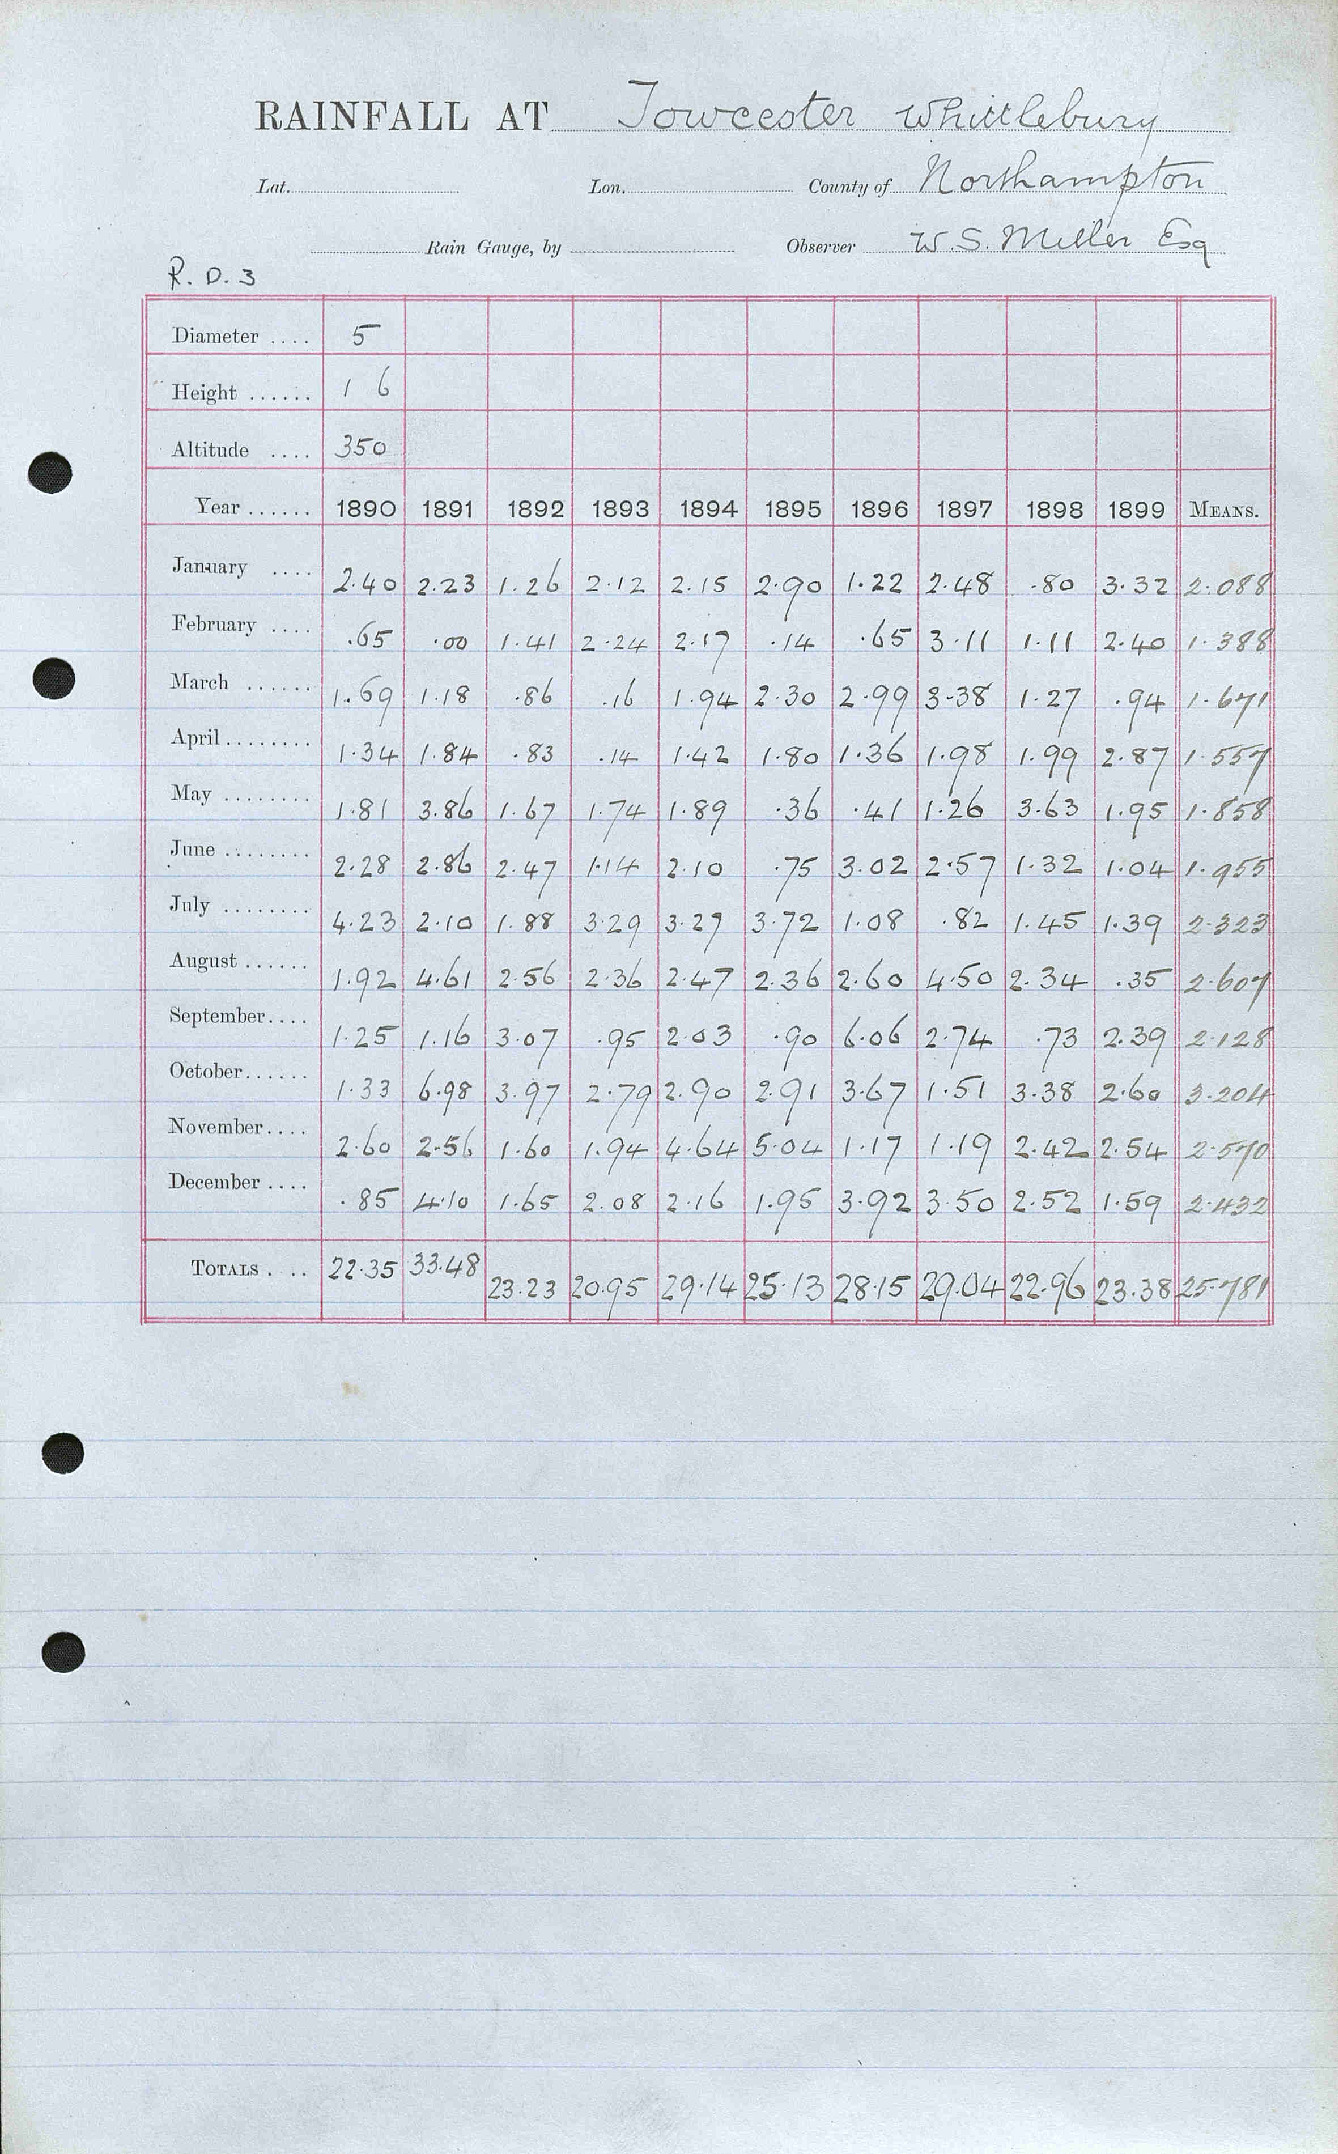 RAINFALL AT Towcester Whittlebury
Lat. Lon. County of Northampton
Rain Gauge, by Observer W. S. Miller Esq
R. D. 3
Diameter .... 5
Height ...... 1 6
Altitude .... 350
Year ...... 1890 1891 1892 1893 1894 1895 1896 1897 1898 1899 MEANS.
January .... 2.40 2.23 1.26 2.12 2.15 2.90 1.22 2.48 .80 3.32 2.088
February .... .65 .00 1.41 2.24 2.17 .14 .65 3.11 1.11 2.40 1.388
March ...... 1.69 1.18 .86 .16 1.94 2.30 2.99 3.38 1.27 .94 1.671
April ........ 1.34 1.84 .83 .14 1.42 1.80 1.36 1.98 1.99 2.87 1.557
May ........ 1.81 3.86 1.67 1.74 1.89 .36 .41 1.26 3.63 1.95 1.858
June ........ 2.28 2.86 2.47 1.14 2.10 .75 3.02 2.57 1.32 1.04 1.955
July ........ 4.23 2.10 1.88 3.29 3.27 3.72 1.08 .82 1.45 1.39 2.323
August ...... 1.92 4.61 2.56 2.36 2.47 2.36 2.60 4.50 2.34 .35 2.607
September.... 1.25 1.16 3.07 .95 2.03 .90 6.06 2.74 .73 2.39 2.128
October...... 1.33 6.98 3.97 2.79 2.90 2.91 3.67 1.51 3.38 2.60 3.204
November.... 2.60 2.56 1.60 1.94 4.64 5.04 1.17 1.19 2.42 2.54 2.570
December .... .85 4.10 1.65 2.08 2.16 1.95 3.92 3.50 2.52 1.59 2.432
TOTALS . .. 22.35 33.48 23.23 20.95 29.14 25.13 28.15 29.04 22.96 23.38 25.781